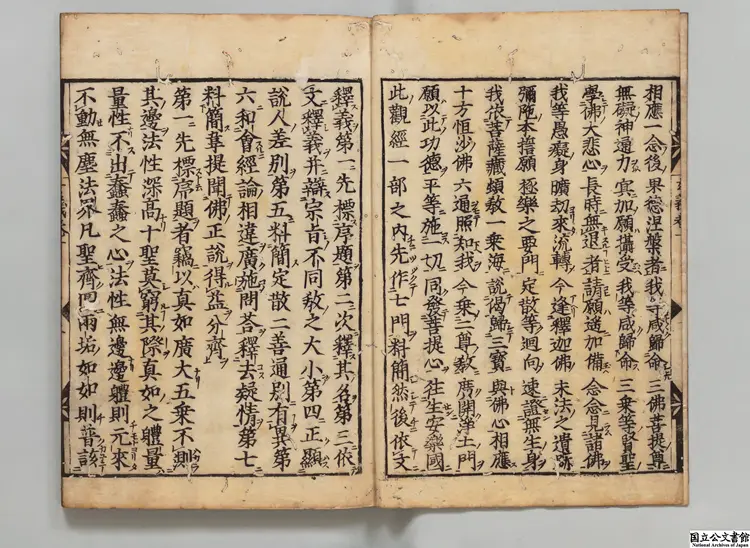 相應一念後 果德涅槃者 我等咸歸命 三佛菩提尊
無礙神通力 冥加願攝受 我等咸歸命 三乘等賢聖
學佛大悲心 長時無退者 請願遙加備 念念見諸佛
我等愚癡身 曠劫來流轉 今逢釋迦佛 末法之遺跡
彌陁本誓願 極樂之要門 定散等迴向 速證無生身
我依菩薩藏 頓敎一乘海 說偈歸三寶 與佛心相應
十方恒沙佛 六通照知我 今乘二尊敎 廣開淨土門
願以此功德 平等施一切 同發菩提心 往生安樂國
此觀經一部之内先作七門料簡然後依文
釋義第一先標序題第二次釋其名第三依
文釋義并辯宗旨不同敎之大小第四正顯
說人差別第五料簡定散二善通別有異第
六和會經論相違廣施問荅釋去疑情第七
料簡韋提聞佛正說得益分齊
第一先標序題者竊以真如廣大五乘不測
其邊法性深高十聖莫窮其際真如之體量
量性不出蠢蠢之心法性無邊邊體則元來
不動無塵法界凡聖齊圓兩垢如如則普該
国立公文書館
National Archives of Japan